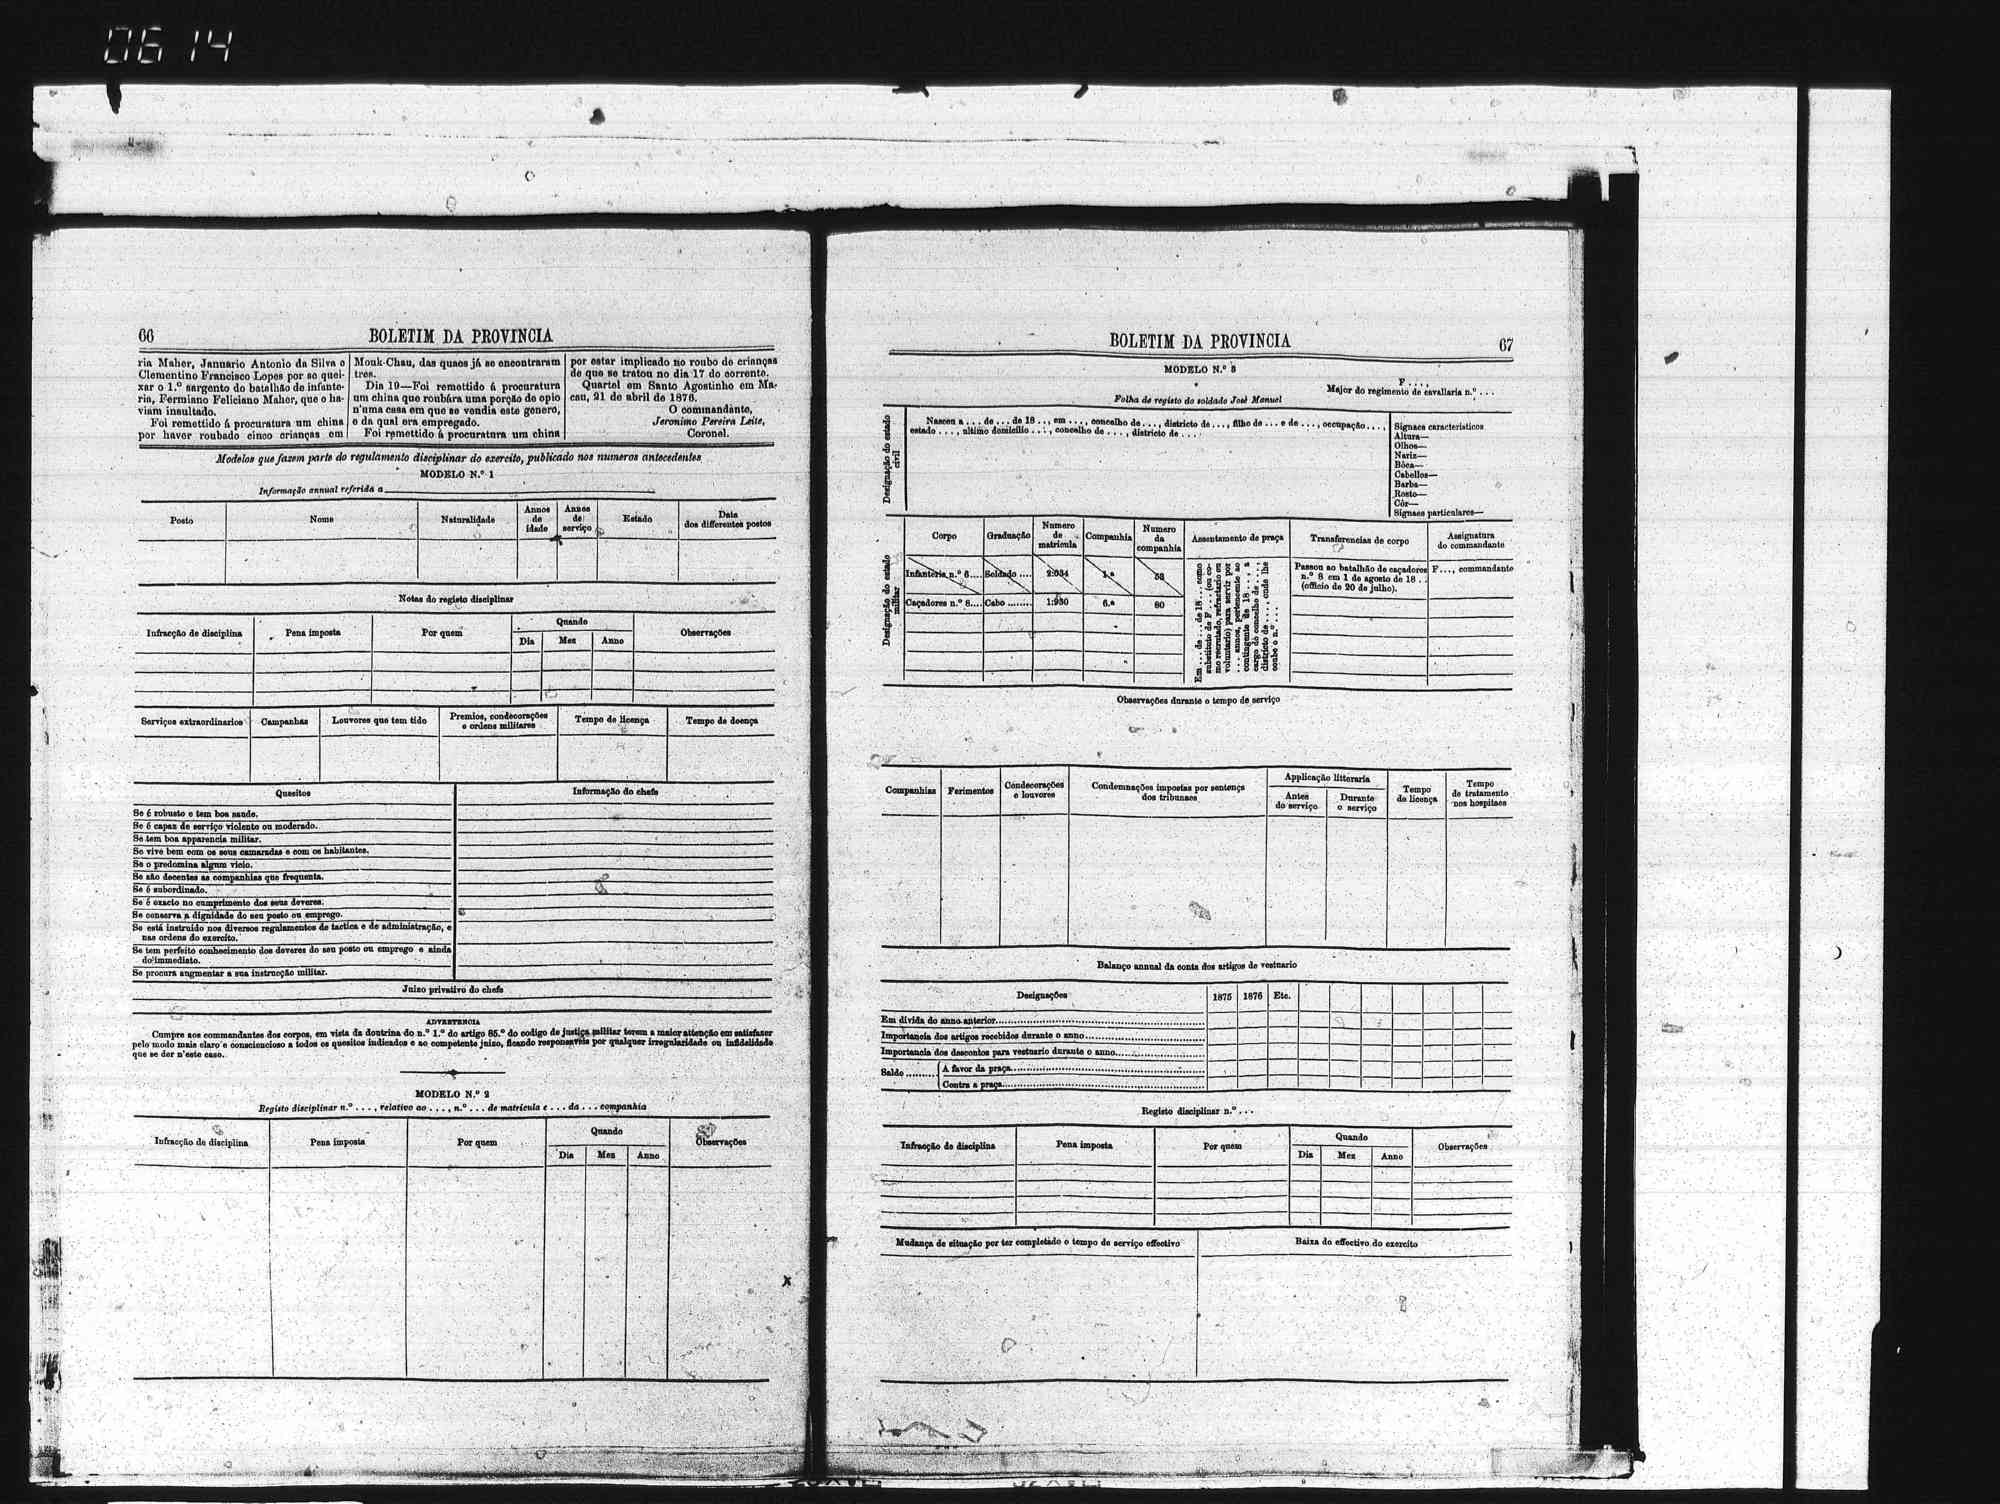 0614
66
BOLETIM DA PROVINCIA
ria Maher, Januario Antonio da Silva e
Clementino Francisco Lopes por se quei-
xar o 1.º sargento do batalhão de infante-
ria, Fermiano Feliciano Maher, que o ha-
viam insultado.
Foi remettido á procuratura um china
por haver roubado cinco crianças em
Monk-Chau, das quaes já se encontraram
tres.
Dia 19—Foi remettido á procuratura
um china que roubára uma porção de opio
n'uma casa em que se vendia este genero,
e da qual era empregado.
Foi remettido á procuratura um china
por estar implicado no roubo de crianças
de que se tratou no dia 17 do corrente.
Quartel em Santo Agostinho em Ma-
cau, 21 de abril de 1876.
O commandante,
Jeronimo Pereira Leite,
Coronel.
Modelos que fazem parte do regulamento disciplinar do exercito, publicado nos numeros antecedentes
MODELO N.º 1
Informação annual referida a
Posto
Nome
Naturalidade
Annos
de
idade
Annos
de
serviço
Estado
Data
dos differentes postos
Notas do registo disciplinar
Infracção de disciplina
Pena imposta
Por quem
Quando
Dia
Mez
Anno
Observações
Serviços extraordinarios
Campanhas
Louvores que tem tido
Premios, condecorações
e ordens militares
Tempo de licença
Tempo de doença
Quesitos
Informação do chefe
Se é robusto e tem boa saude.
Se é capaz de serviço violento ou moderado.
Se tem boa apparencia militar.
Se vive bem com os seus camaradas e com os habitantes.
Se o predomina algum vicio.
Se são decentes as companhias que frequenta.
Se é subordinado.
Se é exacto no cumprimento dos seus deveres.
Se conserva a dignidade do seu posto ou emprego.
Se está instruido nos diversos regulamentos de tactica e de administração, e
nas ordens do exercito.
Se tem perfeito conhecimento dos deveres do seu posto ou emprego e ainda
do immediato.
Se procura augmentar a sua instrucção militar.
Juizo privativo do chefe
ADVERTENCIA
Cumpre aos commandantes dos corpos, em vista da doutrina do n.º 1.º do artigo 85.º do codigo de justiça militar terem a maior attenção em satisfazer
pelo modo mais claro e consciencioso a todos os quesitos indicados e ao competente juizo, ficando responsaveis por qualquer irregularidade ou infidelidade
que se der n'este caso.
MODELO N.º 2
Registo disciplinar n.º . . . , relativo ao . . . , n.º . . . de matricula e . . . da . . . companhia
Infracção de disciplina
Pena imposta
Por quem
Quando
Dia
Mez
Anno
Observações
BOLETIM DA PROVINCIA
67
MODELO N.º 3
F . . . ,
Major do regimento de cavallaria n.º . . .
Folha de registo do soldado José Manuel
Designação do estado
civil
Nasceu a . . . de . . . de 18 . . , em . . . , concelho de . . . , districto de . . . , filho de . . . e de . . . , occupação . . . ,
estado . . . , ultimo domicilio . . . , concelho de . . . , districto de . . .
Signaes caracteristicos
Altura—
Olhos—
Nariz—
Bôca—
Cabellos—
Barba—
Rosto—
Côr—
Signaes particulares—
Designação do estado
militar
Corpo
Graduação
Numero
de
matricula
Companhia
Numero
da
companhia
Assentamento de praça
Transferencias de corpo
Assignatura
do commandante
Infanteria n.º 6....
Soldado ....
2:034
1.ª
53
Caçadores n.º 8....
Cabo ........
1:930
6.ª
80
Em . . . de . . . de 18 . . . como
substituto de F . . . (ou co-
mo recrutado, refractario ou
voluntario) para servir por
. . . annos, pertencente ao
contingente de 18 . . . , a
cargo do concelho de . . . ,
districto de . . . , onde lhe
coube o n.º . . .
Passou ao batalhão de caçadores
n.º 8 em 1 de agosto de 18 . .
(officio de 20 de julho).
F . . . , commandante
Observações durante o tempo de serviço
Companhias
Ferimentos
Condecorações
e louvores
Condemnações impostas por sentença
dos tribunaes
Applicação litteraria
Antes
do serviço
Durante
o serviço
Tempo
de licença
Tempo
de tratamento
nos hospitaes
Balanço annual da conta dos artigos de vestuario
Designações
1875
1876
Etc.
Em divida do anno anterior
Importancia dos artigos recebidos durante o anno
Importancia dos descontos para vestuario durante o anno
Saldo
A favor da praça
Contra a praça
Registo disciplinar n.º . . .
Infracção de disciplina
Pena imposta
Por quem
Quando
Dia
Mez
Anno
Observações
Mudança de situação por ter completado o tempo de serviço effectivo
Baixa do effectivo do exercito